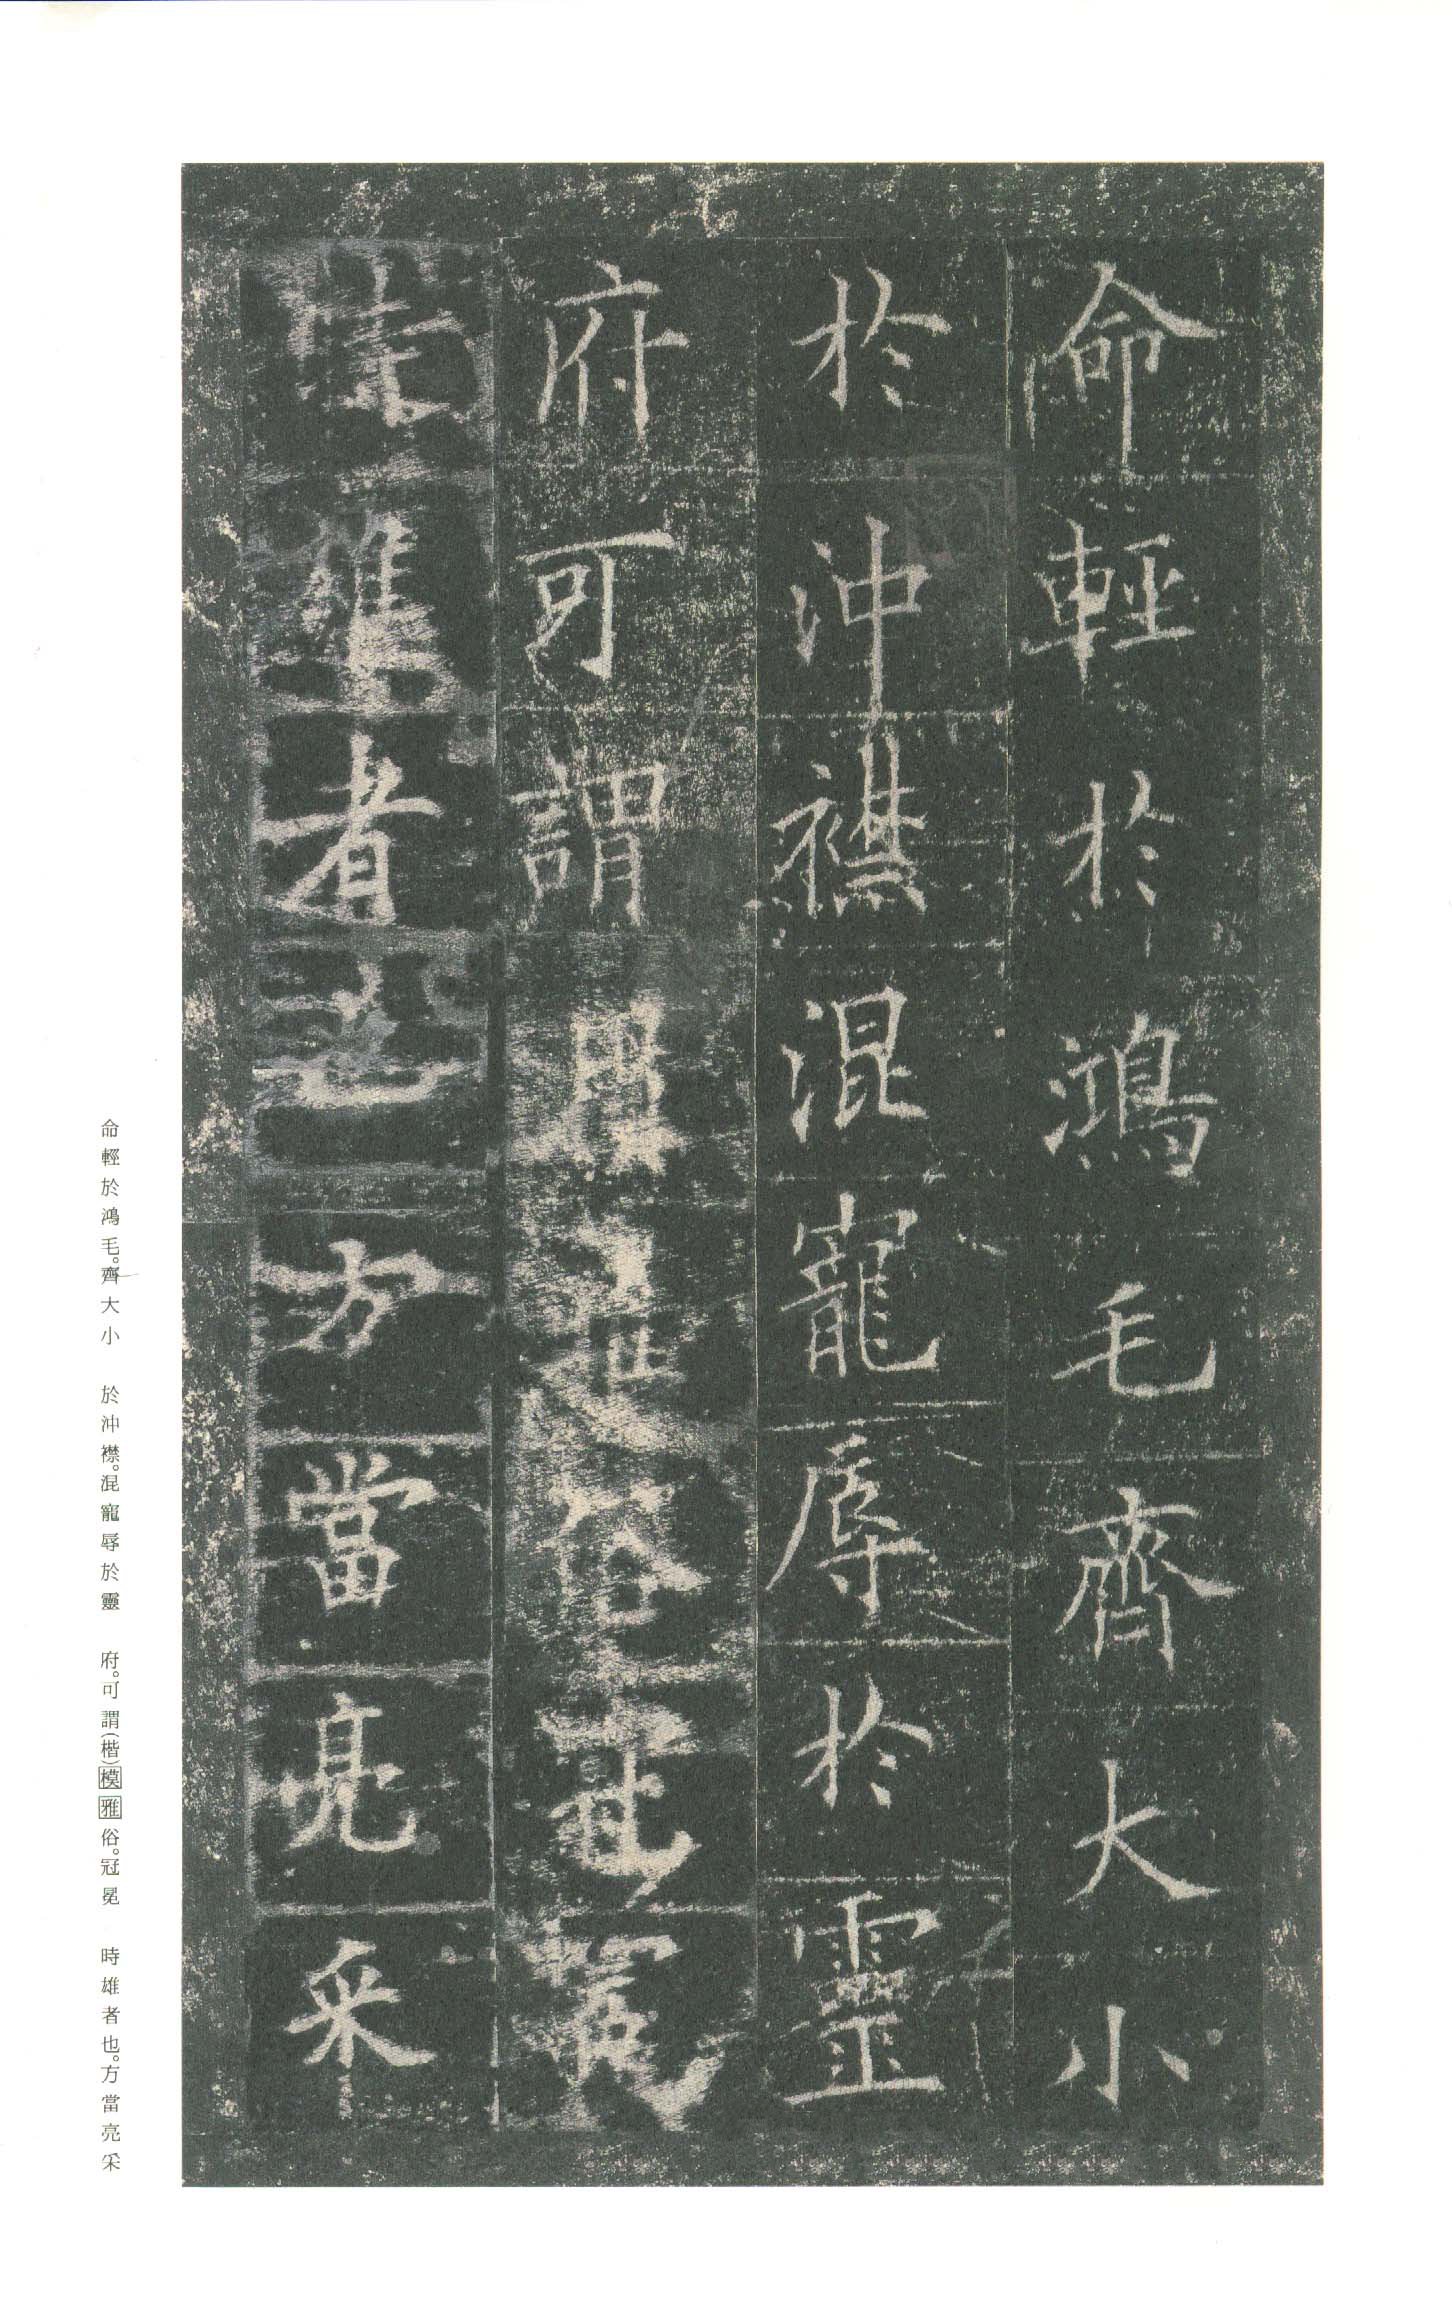 命輕於鴻毛齊大小
於沖襟混寵辱於靈
府可謂俗冠冕
時雄者也方當亮采
命輕於鴻毛。齊大小　於沖襟。混寵辱於靈　府。可謂（楷）模雅俗。冠冕　時雄者也。方當亮采